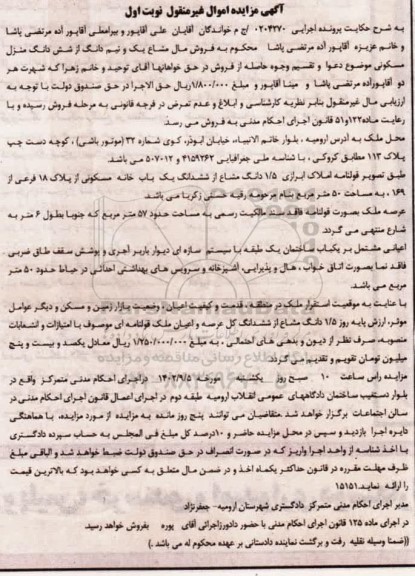 آگهی مزایده اموال غیرمنقول نوبت اول
به شرح حکایت پرونده اجرایی ۰۲۰۴۳۷۰ /ج م خواندگان آقایان علی آقاپور و بیرامعلی آقاپور آده مرتضی پاشا
و خانم عزیزه آقاپور آده مرتضی پاشا محکوم به فروش مال مشاع یک و نیم دانگ از شش دانگ منزل
مسکونی موضوع دعوا و تقسیم وجوه حاصله از فروش در حق خواهانها آقای توحید و خانم زهرا که شهرت هر
دو آقاپورآده مرتضی پاشا و مینا آقاپور و مبلغ ۱/۸۰۰/۰۰۰ریال حق الاجرا در حق صندوق دولت با توجه به
ارزیابی مال غیرمنقول بنابر نظریه کارشناسی و ابلاغ و عدم تعرض در فرجه قانونی به مرحله فروش رسیده و با
رعایت ماده۱۲۲و۵۱ قانون اجرای احکام مدنی به فروش می رسد.
محل ملک به آدرس ارومیه ، بلوار خاتم الانبیاء، خیابان ابوذر، کوی شماره ۳۲ (موتور باشی) ، کوچه دست چپ
پلاک ۱۱۳ مطابق کروکی ، با شناسه طی جغرافیایی ۴۱۵۹۲۶۲ و ۵۰۷۰۱۲ می باشد.
طبق تصویر قولنامه املاک ابرازی ۱/۵ دانگ مشاع از ششدانگ یک باب خانه مسکونی از پلاک ۱۸ فرعی از
۱۶۹ ، به مساحت ۵۰ متر مربع بنام مرحومه رقیه حسنی زکریا می باشد.
عرصه ملک بصورت قولنامه فاقد سند مالکیت رسمی به مساحت حدود ۵۷ متر مربع که جنوبا بطول ۶ متر به
شارع منتهی می گردد.
اعیانی مشتمل بر یکباب ساختمان یک طبقه با سیستم سازه ای دیوار باربر آجری و پوشش سقف طاق ضربی
فاقد نما بصورت اتاق خواب ، هال و پذیرایی، آشپزخانه و سرویس های بهداشتی احداثی در حیاط حدود ۵۰ متر
مربع می باشد.
با عنایت به موقعیت استقرار ملک در منطقه، قدمت و کیفیت اعیان ، وضعیت بازار زمین و مسکن و دیگر عوامل
موثر، ارزش پایه روز ۱/۵ دانگ مشاع از ششدانگ کل عرصه و اعیان ملک قولنامه ای موصوف با امتیازات و انشعابات
منصوبه، صرف نظر از دیون و بدهی های احتمالی ، به مبلغ ۱/۲۵۰/۰۰۰/۰۰۰ ریال معادل یکصد و بیست و پنج
میلیون تومان تقویم و تقدیم می گردد.
مزایده راس ساعت ۱۰ صبح روز یکشنبه مورخه دراجرای احکام مدنی متمرکز واقع در
بلوار دستغیب ساختمان دادگاههای عمومی انقلاب ارومیه طبقه دوم در اجرای اعمال قانون اجرای احکام مدنی در
سالن اجتماعات برگزار خواهد شد .متقاضیان می توانند پنج روز مانده به مزایده از مورد مزایده، با هماهنگی
دایره اجرا بازدید و سپس در محل مزایده حاضر و ۱۰درصد کل مبلغ فی المجلس به حساب سپرده دادگستری
با اخذ شناسه از واحد اجرا واریز که در صورت انصراف در حق صندوق دولت ضبط خواهد شد و الباقی مبلغ
ظرف مهلت مقرره در قانون حداکثر یکماه اخذ و در ضمن مال متعلق به کسی خواهد بود که بالاترین قیمت
را ارائه نماید.۱۵۱۵۱
مدیر اجرای احکام مدنی متمرکز دادگستری شهرستان ارومیه- جعفرنژاد
در اجرای ماده ۱۲۵ قانون اجرای احکام مدنی با حضور دادورزاجرائی آقای پوره بفروش خواهد رسید.
((ضمنا وسیله نقلیه رفت و برگشت نماینده دادستانی بر عهده محکوم له می باشد .)